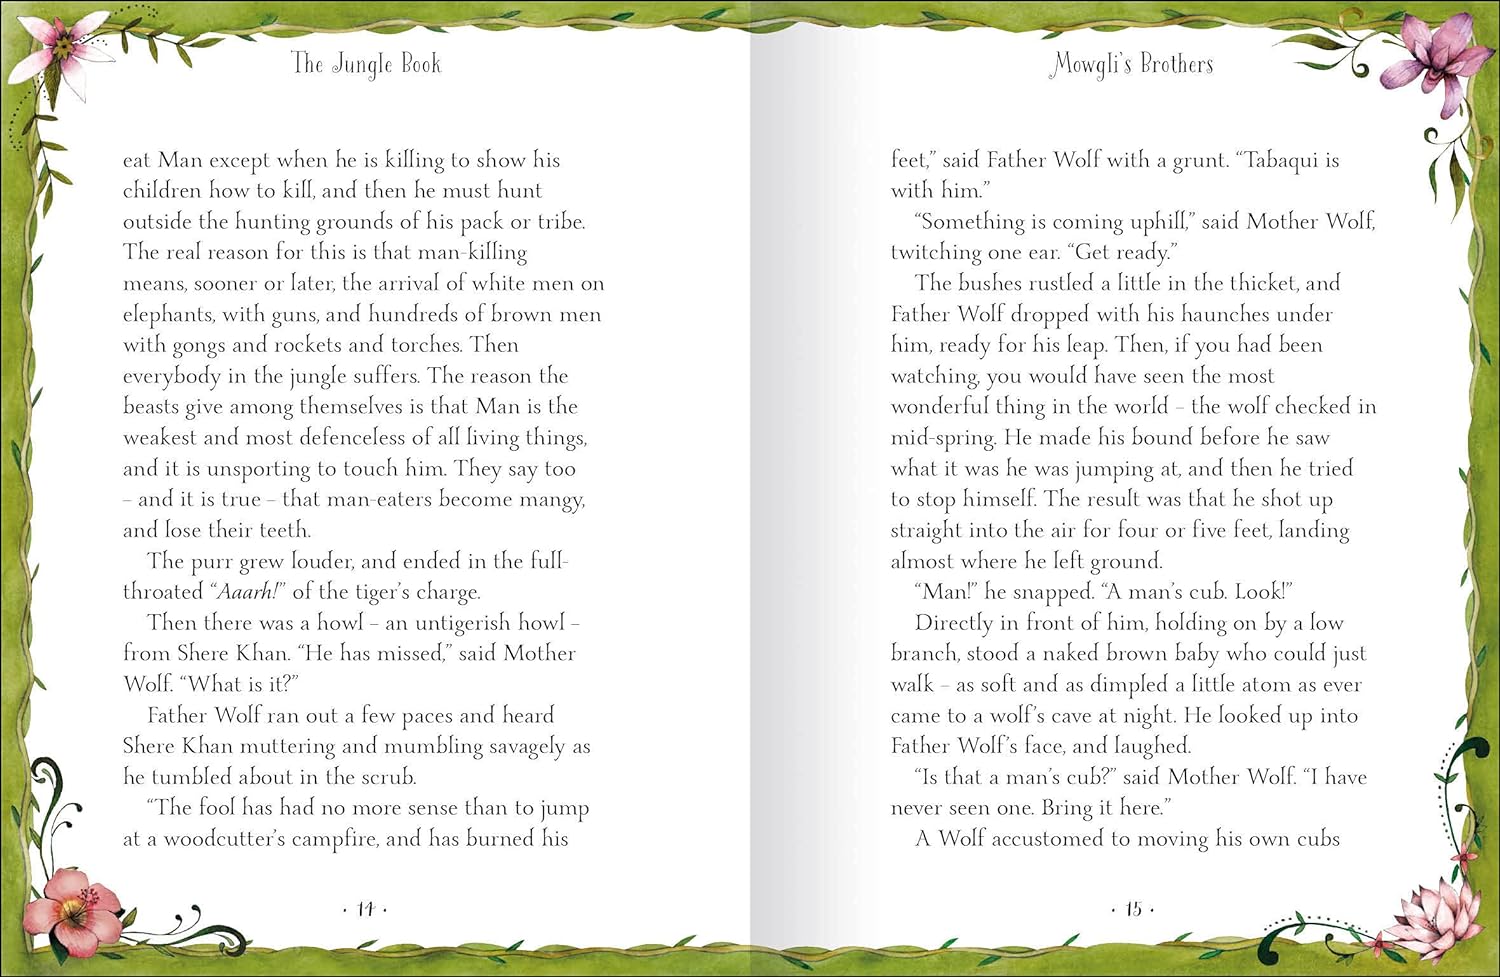 The Jungle Book
eat Man except when he is killing to show his
children how to kill, and then he must hunt
outside the hunting grounds of his pack or tribe.
The real reason for this is that man-killing
means, sooner or later, the arrival of white men on
elephants, with guns, and hundreds of brown men
with gongs and rockets and torches. Then
everybody in the jungle suffers. The reason the
beasts give among themselves is that Man is the
weakest and most defenceless of all living things,
and it is unsporting to touch him. They say too
– and it is true – that man-eaters become mangy,
and lose their teeth.
The purr grew louder, and ended in the full-
throated “Aaarh!” of the tiger’s charge.
Then there was a howl – an untigerish howl –
from Shere Khan. “He has missed,” said Mother
Wolf. “What is it?”
Father Wolf ran out a few paces and heard
Shere Khan muttering and mumbling savagely as
he tumbled about in the scrub.
“The fool has had no more sense than to jump
at a woodcutter’s campfire, and has burned his
· 14 ·
Mowgli’s Brothers
feet,” said Father Wolf with a grunt. “Tabaqui is
with him.”
“Something is coming uphill,” said Mother Wolf,
twitching one ear. “Get ready.”
The bushes rustled a little in the thicket, and
Father Wolf dropped with his haunches under
him, ready for his leap. Then, if you had been
watching, you would have seen the most
wonderful thing in the world – the wolf checked in
mid-spring. He made his bound before he saw
what it was he was jumping at, and then he tried
to stop himself. The result was that he shot up
straight into the air for four or five feet, landing
almost where he left ground.
“Man!” he snapped. “A man’s cub. Look!”
Directly in front of him, holding on by a low
branch, stood a naked brown baby who could just
walk – as soft and as dimpled a little atom as ever
came to a wolf’s cave at night. He looked up into
Father Wolf’s face, and laughed.
“Is that a man’s cub?” said Mother Wolf. “I have
never seen one. Bring it here.”
A Wolf accustomed to moving his own cubs
· 15 ·